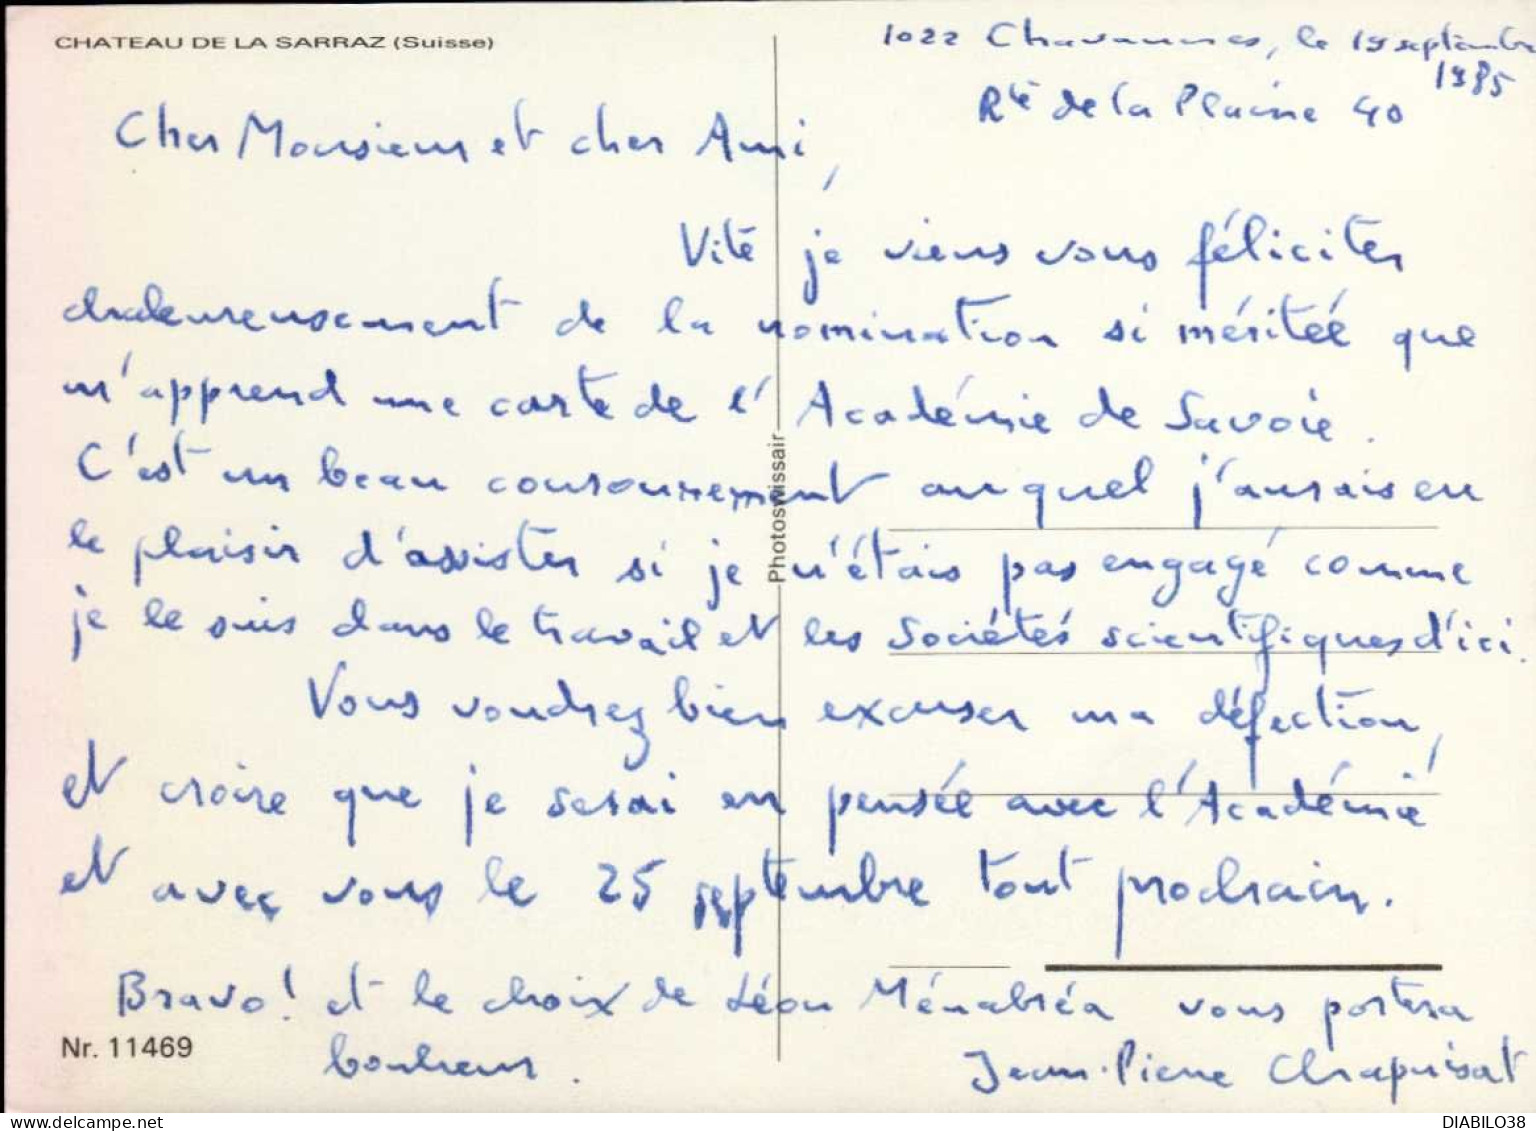 CHATEAU DE LA SARRAZ (Suisse)
1022 Chavannes, le 19 septembre
1985
Rte de la Plaine 40
Cher Monsieur et cher Ami,
Vite je viens vous féliciter
chaleureusement de la nomination si méritée que
m'apprend une carte de l'Académie de Savoie.
C'est un beau couronnement auquel j'aurais eu
le plaisir d'assister si je n'étais pas engagé comme
je le suis dans le travail et les Sociétés scientifiques d'ici.
Vous voudrez bien excuser ma défection,
et croire que je serai en pensée avec l'Académie
et avec vous le 25 septembre tout prochain.
Bravo! et le choix de Léon Ménabréa vous portera
bonheur.
Jean-Pierre Chapuisat
Nr. 11469
Photoswissair
DIABILO38